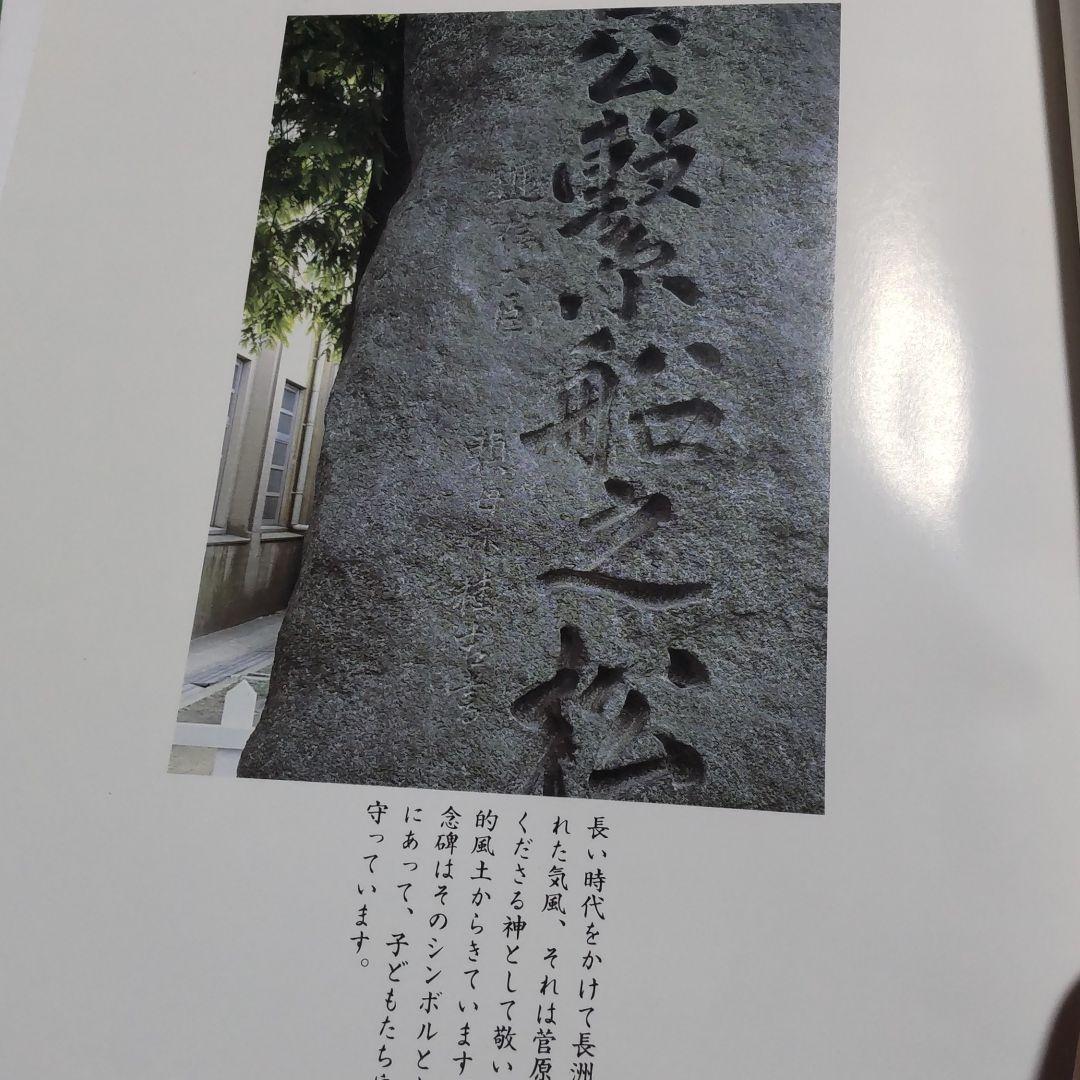 公繋船之松
長い時代をかけて長洲
れた気風、それは菅原
くださる神として敬い
的風土からきています
念碑はそのシンボルと
にあって、子どもたち
守っています。